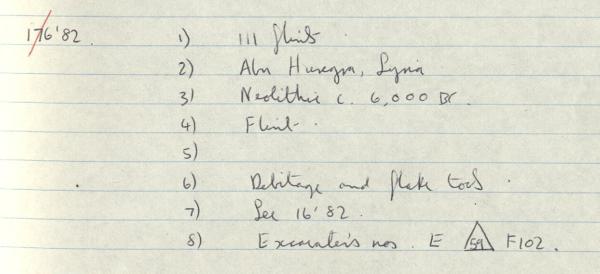 176'82. 1) 111 flints.
2) Abu Hureyra, Syria
3) Neolithic c. 6,000 BC.
4) Flint.
5)
6) Debitage and flake tools.
7) See 16'82.
8) Excavater's nos. E 59 F102.